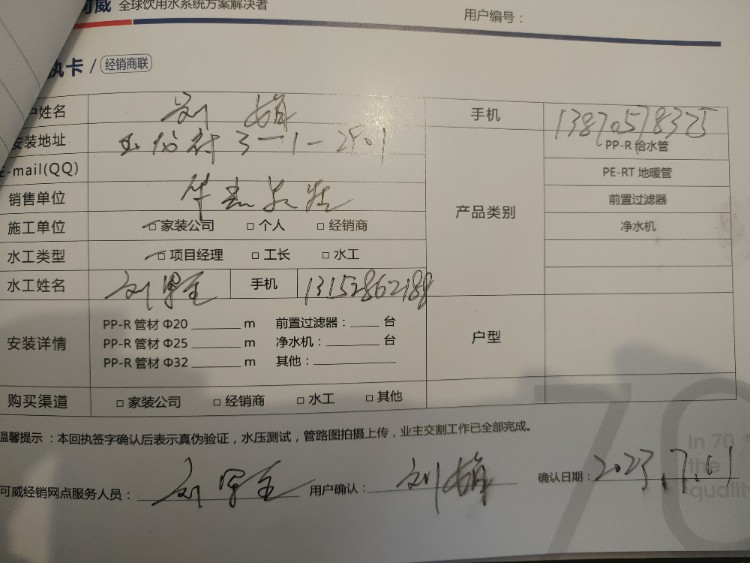 可威 全球饮用水系统方案解决者
用户编号：
执卡 / 经销商联
户姓名 刘 手机 13870578325
安装地址 3-1-2401 PP-R 给水管
E-mail(QQ) PE-RT 地暖管
销售单位 华 产品类别 前置过滤器
施工单位 □ 家装公司 □ 个人 □ 经销商 净水机
水工类型 □ 项目经理 □ 工长 □ 水工
水工姓名 刘 手机 13152862188
安装详情 PP-R 管材 Φ20 ______ m 前置过滤器：____ 台 户型
PP-R 管材 Φ25 ______ m 净水机：____ 台
PP-R 管材 Φ32 ______ m 其他：________
购买渠道 □ 家装公司 □ 经销商 □ 水工 □ 其他
温馨提示：本回执签字确认后表示真伪验证，水压测试，管路图拍摄上传，业主交割工作已全部完成。
可威经销网点服务人员：刘 用户确认：刘 确认日期：2023.7.01
70
In 70
the
quality